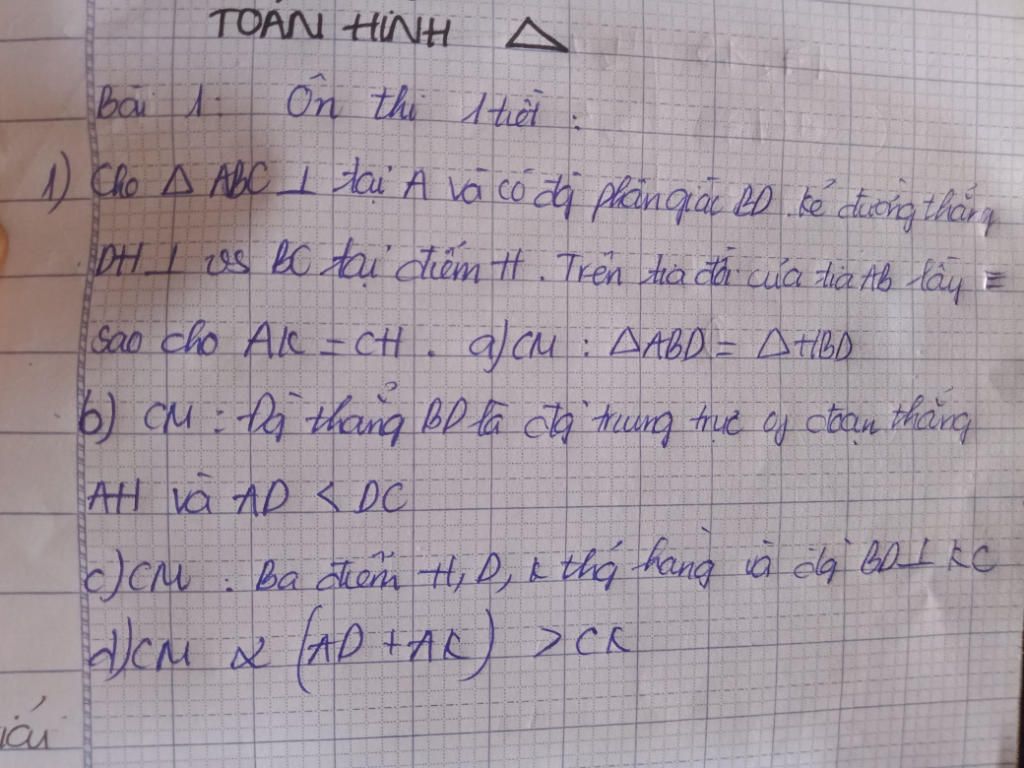 TOÁN HÌNH △
Bài 1: Ôn thi 1 tiết:
1) Cho △ ABC ⊥ tại A và có đg phân giác BD. kẻ đường thẳng
DH ⊥ vs BC tại điểm H. Trên tia đối của tia AB lấy
sao cho AK = CH. a) CM: △ABD = △HBD
b) CM: Đg thẳng BD là đg trung trực of đoạn thẳng
AH và AD < DC
c) CM: Ba điểm H, D, K thg hàng và đg BD ⊥ KC
d) CM 2 (AD + AK) > CK